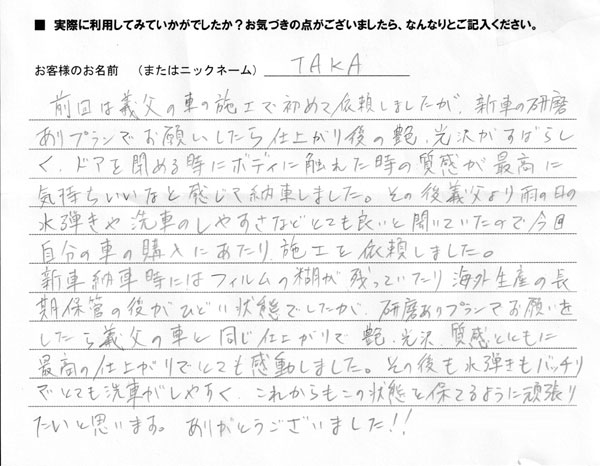 ■ 実際に利用してみていかがでしたか？お気づきの点がございましたら、なんなりとご記入ください。
お客様のお名前 （またはニックネーム） TAKA
前回は義父の車の施工で初めて依頼しましたが、新車の研磨
ありプランでお願いしたら仕上がり後の艶、光沢がすばらし
く、ドアを閉める時にボディに触れた時の質感が最高に
気持ちいいなと感じて納車しました。その後義父より雨の日の
水弾きや洗車のしやすさなどとても良いと聞いていたので今回
自分の車の購入にあたり、施工を依頼しました。
新車納車時にはフィルムの糊が残っていたり海外生産の長
期保管の後がひどい状態でしたが、研磨ありプランでお願いを
したら義父の車と同じ仕上がりで艶、光沢、質感とともに
最高の仕上がりでとても感動しました。その後も水弾きもバッチリ
でとても洗車がしやすく、これからもこの状態を保てるように頑張り
たいと思います。ありがとうございました!!